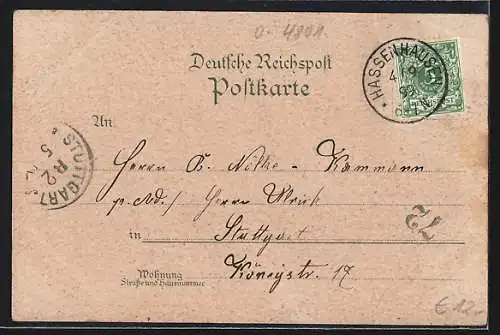 o- 4801.
Deutsche Reichspost
Postkarte
* HASSENHAUSEN
4 9
99
An
STUTTGART
R 2
5
Herrn K. Nölke-Kammann
p. Ad. Herrn Ulrich
in Stuttgart
Königstr. 17
Wohnung
Straße und Hausnummer
72
€ 12.-